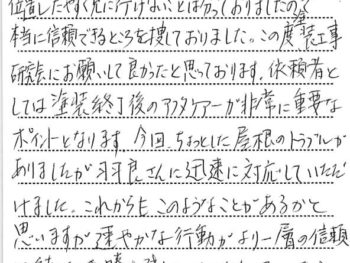 位置したやすく見に行けないことは分っておりましたので
本当に信頼できるところを捜しておりました。この塗装工事
研究にお願いして良かったと思っております。依頼者と
しては塗装終了後のアフタケアーが非常に重要な
ポイントとなります。今回、ちょっとした屋根のトラブルが
ありましたが羽良さんに迅速に対応していただ
けました。これからも このようなことがあるかと
思いますが速やかな行動がより一層の信頼